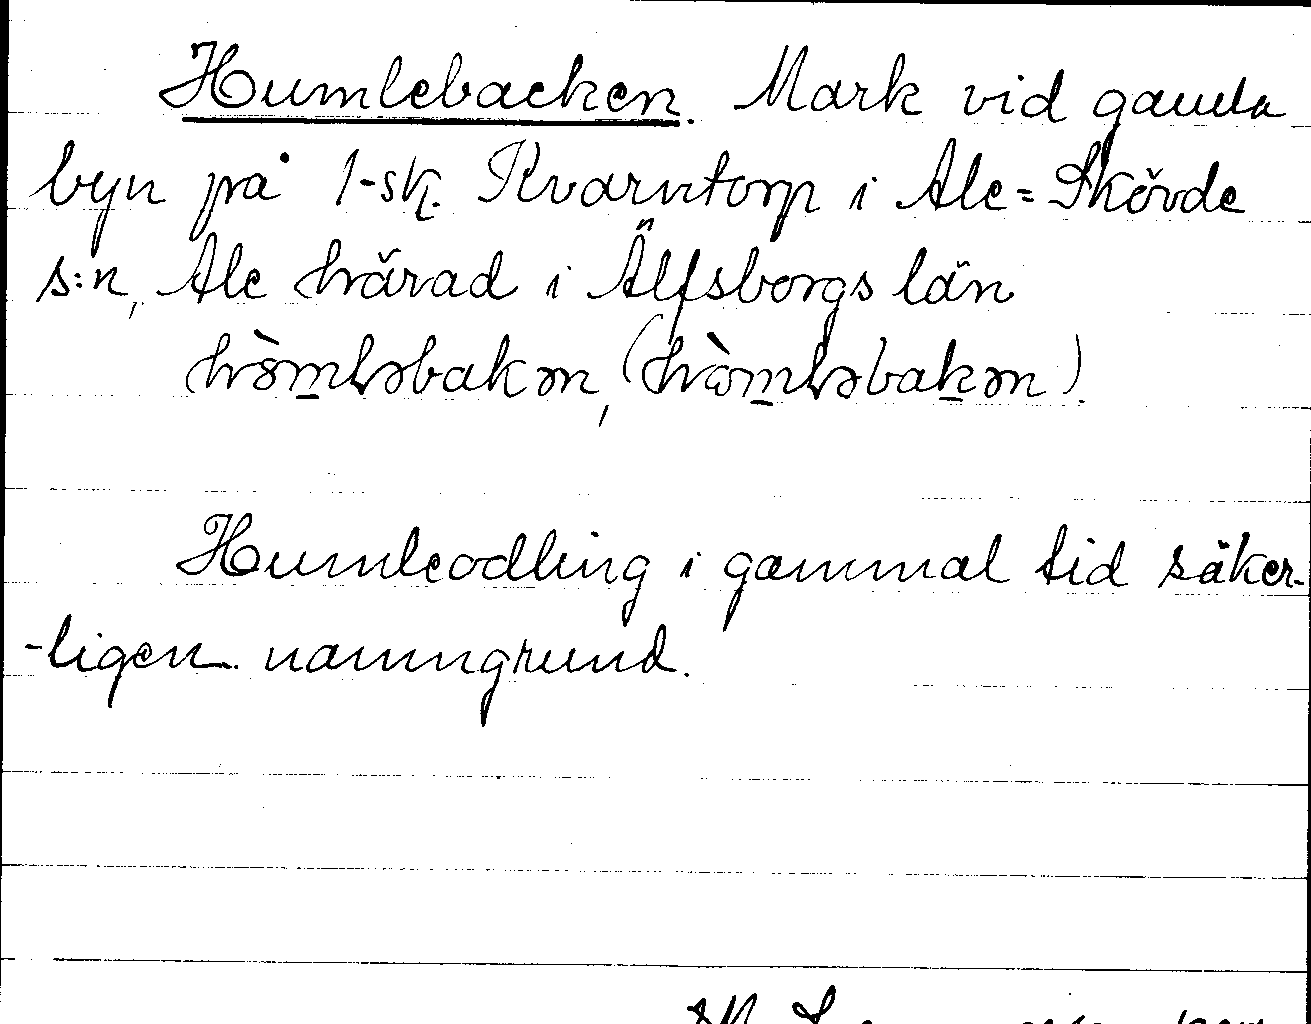 Humlebacken. Mark vid gamla
byn på 1-sk. Kvarntorp i Ale=Skövde
s:n, Ale härad i Älfsborgs län
hòmləbakən, (hòmləbakən).
Humleodling i gammal tid säker-
-ligen namngrund.